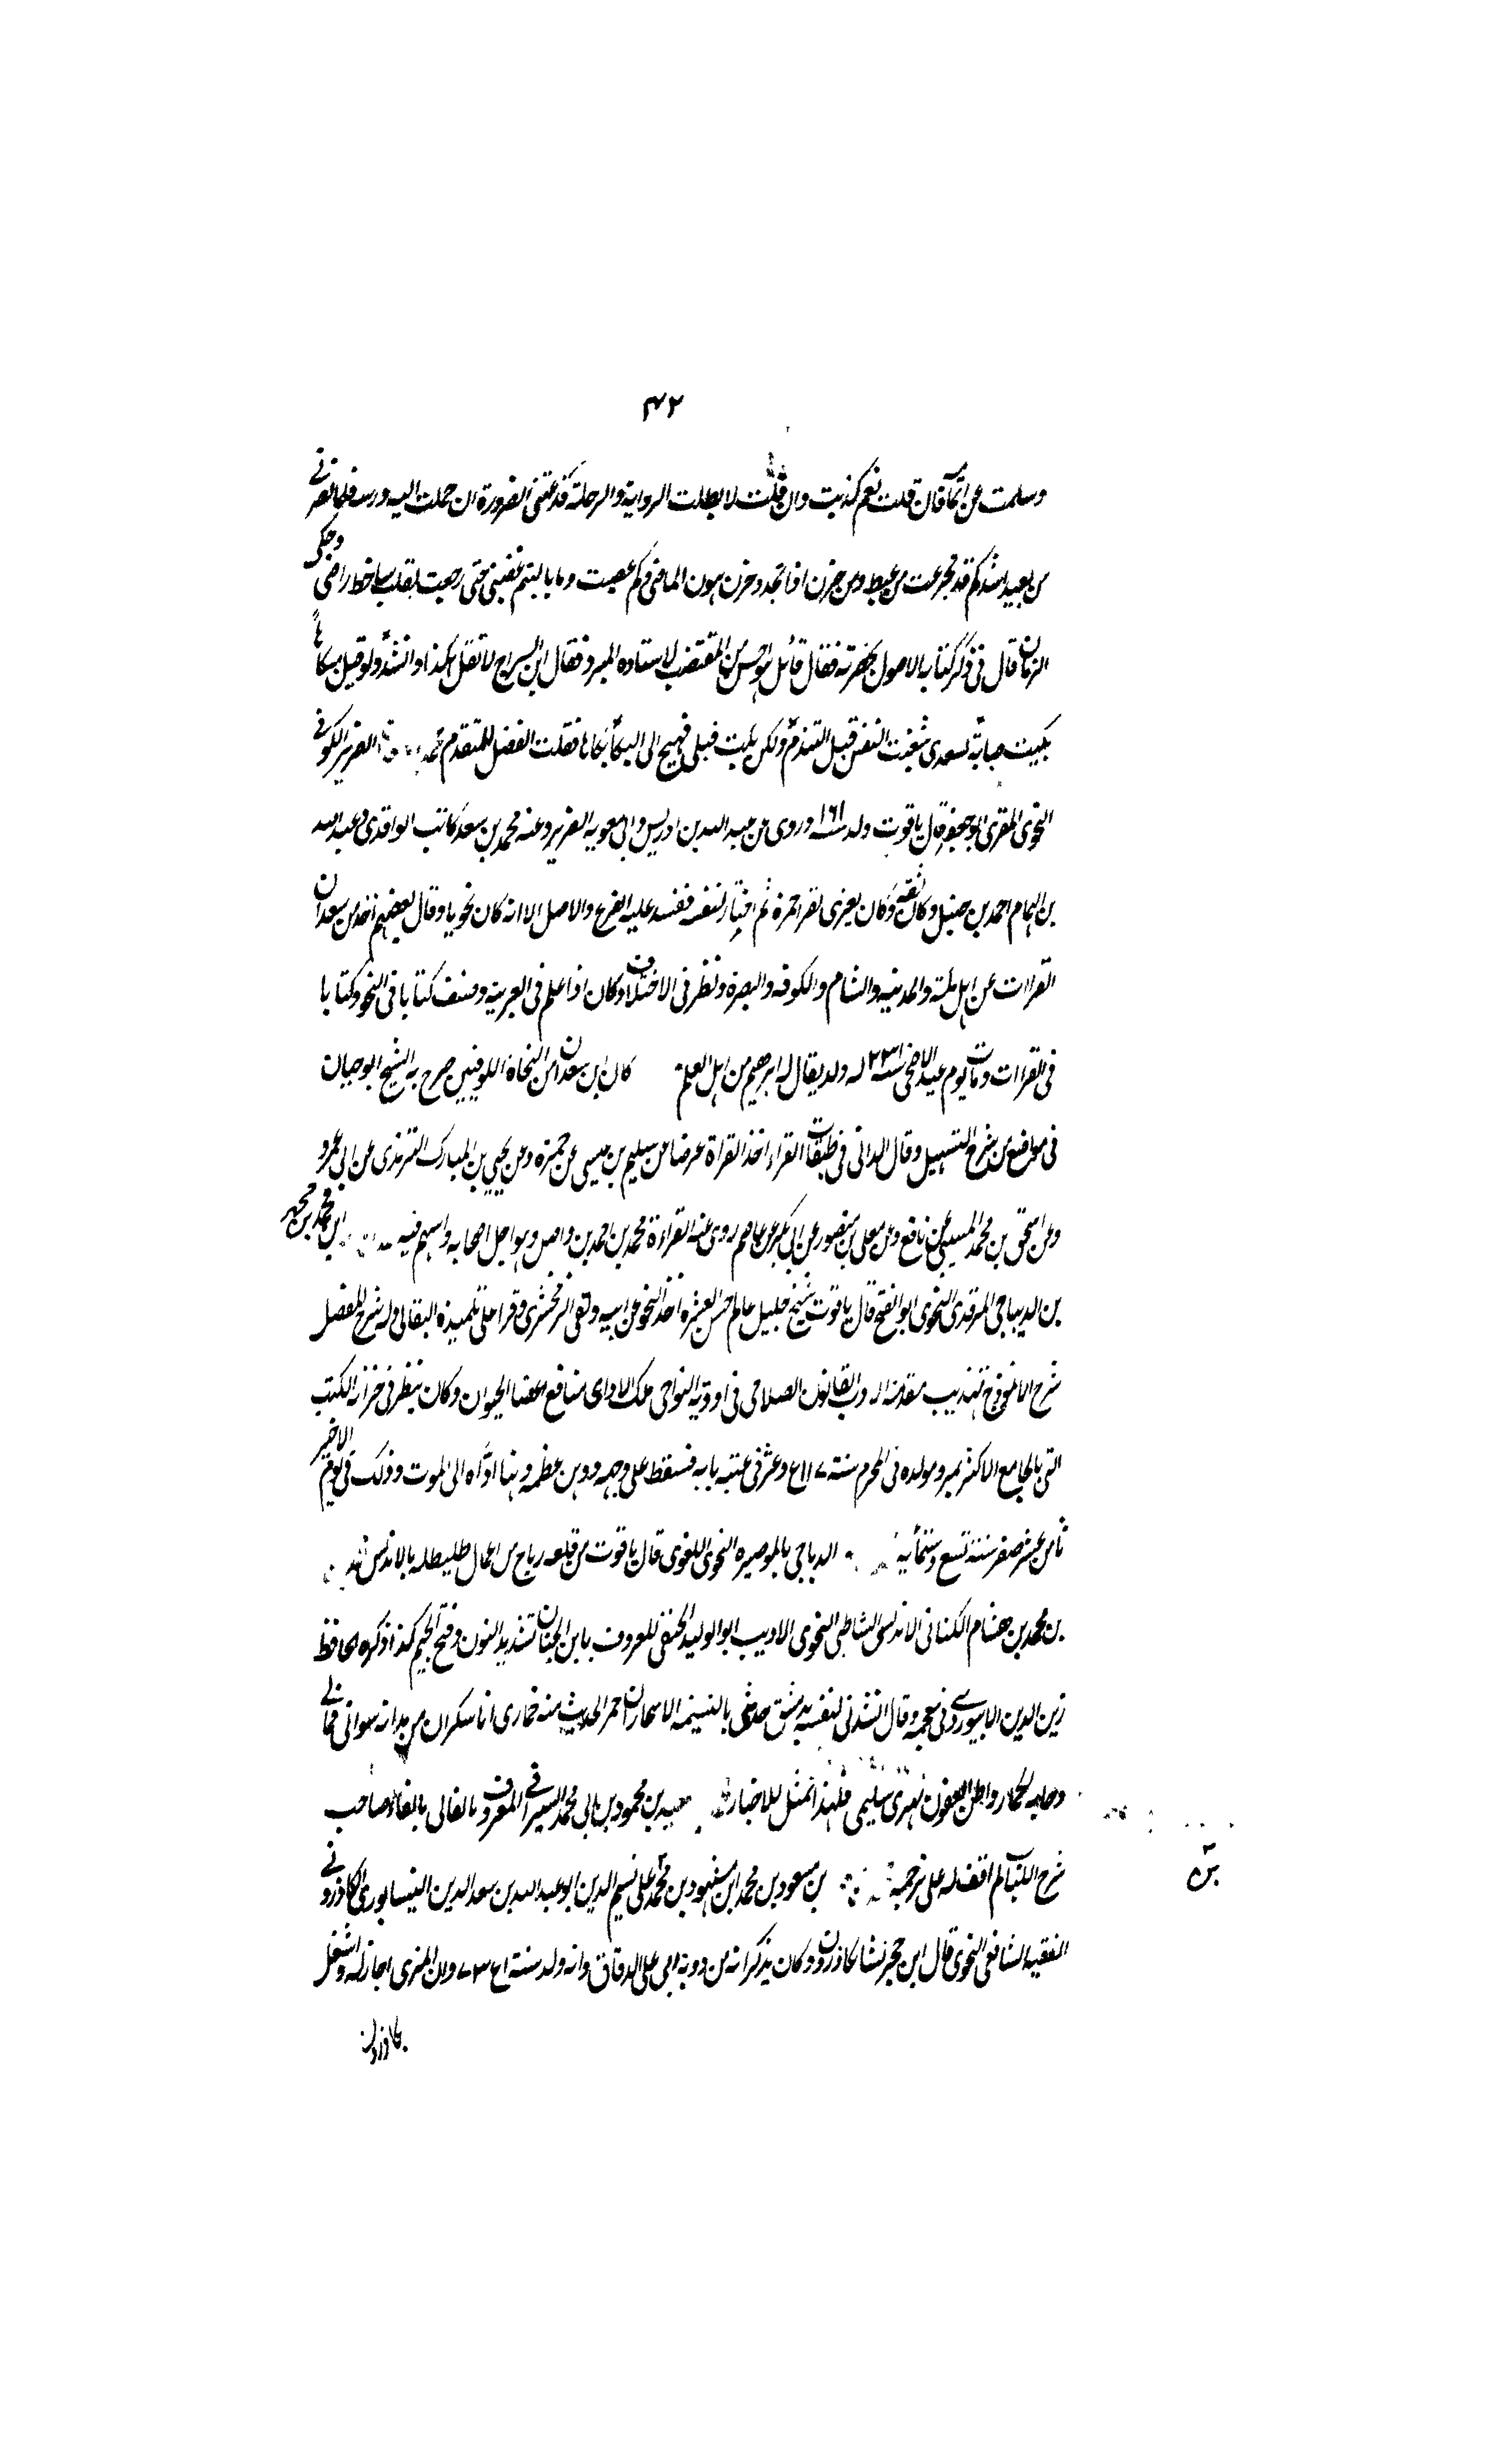 ٤٢
وسلمت عن اتمامه فان قلت نعم كذبت وان قلت لا بطلت الرواية والرحلة فدعتنى الضرورة ان حملت اليه ورسه فلما بصرنى
من بعيد انشد كم قد تجرعت من غيظ ومن حزن اذا تجدد حزن هون الماضى وكم غضبت وما باليتم غضبى حتى رجعت بقلب ساخط راضى وحكى
الزمان قال فى ذكر كتابه الاصول بحضرته فقال قائل هو احسن من المقتضب لاستاده المبرد فقال ابن السراج لا تقل هكذا وانشد ولو قبل مبكاها
بكيت صبابة لسعدى شفيت النفس قبل التندم ولكن بكت قبلى فهيج لى البكا بكاها فقلت الفضل للمتقدم محمد الضرير الكوفى
النحوى المقرى ابو جعفر قال ياقوت ولد سنة ١٦١ وروى عن عبد الله بن ادريس وابى معوية الضرير وعنه محمد بن سعد كاتب الواقدى وعبد الله
بن الامام احمد بن حنبل وكان ثقة وكان يعزى لقرا حمزة ثم اختار لنفسه ففسد عليه الفرع والاصل الا انه كان نحويا وقال بعضهم اخذ ابن سعدان
القراات عن اهل مكة والمدينة والشام والكوفة والبصرة ونظر فى الاختلاف وكان ذا علم فى العربية وصنف كتابا فى النحو وكتابا
فى القراات ومات يوم عيد الاضحى سنة ٢٣١ له ولد يقال له ابرهيم من اهل العلم كان ابن سعدان من النحاة الكوفيين صرح به الشيخ ابو حيان
فى مواضع من شرح التسهيل وقال الدانى فى طبقات القراء اخذ القراة عرضا عن سليم بن عيسى عن حمزة وعن يحيى بن المبارك التزيدى عن ابى عمرو
وعن اسحق بن محمد المسيبى عن نافع وعن معلى بن منصور عن ابى بكر عن عاصم روى عنه القراءة محمد بن احمد بن واصل وهو اجل اصحابه واسهم فيه ابن محمد بن محمد
بن الديباجى المرقدى النحوى ابو الفتح قال ياقوت شيخ جليل عالم حسن العشرة اخذ النحو عن ابيه ولقى الزمخشرى وقرا على تلميذه البقالى وله شرح المفصل
شرح الانموذج تهذيب مقدمة الادب القانون الصلاحى فى اودية النواحى فلك الادب منافع اعضا الحيوان وكان ينظر فى خزانة الكتب
التى بالجامع الاكبر بمرو مولده فى المحرم سنة ٧ ااع وعثر فى عتبة بابه فسقط على وجهه ووهن عظمه وهنا اداه الى الموت وذلك فى يوم الاخير
ثامن عشر صفر سنة تسع وستمائة الدباجى بالموصيره النحوى اللغوى قال ياقوت من قلعه رباح من اعمال طليطله بالاندلس
بن محمد بن هشام الكنانى الاندلسى الشاطبى النحوى الاديب ابو الوليد الحنفى المعروف بابن الجنان تشديد النون وفتح الجيم كذا ذكره الحافظ
زين الدين الابيوردى فى معجمه وقال انشدنى لنفسه بدمشق حدثنى بالنسيمه الاسحار ان خمر الحديث منه خمارى انا سكران من مدامه هوانى فمالى
وصاحبه الخمار نعترى سليمى فلهذا تمثل للاخبار سعيد بن محمود بن ابى محمد السيرافى المعروف بالفالى بالفا صاحب
شرح اللباب لم اقف له على ترجمة بن مسعود بن محمد ابن مسعود بن محمد على نسيم الدين ابو عبد الله بن سعد الدين النيسابورى الكازرونى
بن
الفقيه الشافعى النحوى قال ابن حجر نشا بكازرون وكان يذكر انه من ذرية ابى على الدقاق وانه ولد سنة ٧٣٥ وان المزى اجاز له واشتغل
بكازرون